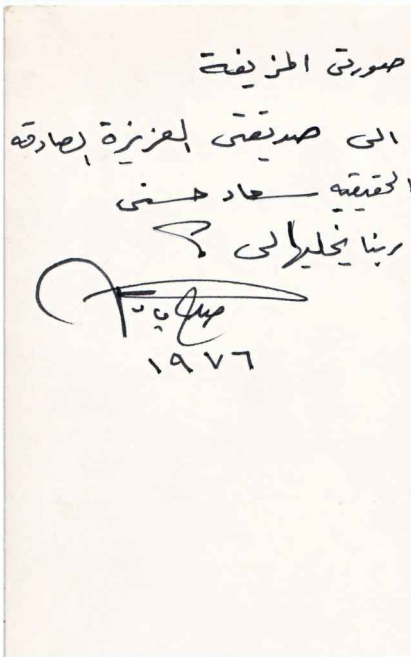 صورتى المزيفة
الى صديقتى العزيزة الصادقه
الحقيقيه سعاد حسنى
ربنا يخليهالى
١٩٧٦